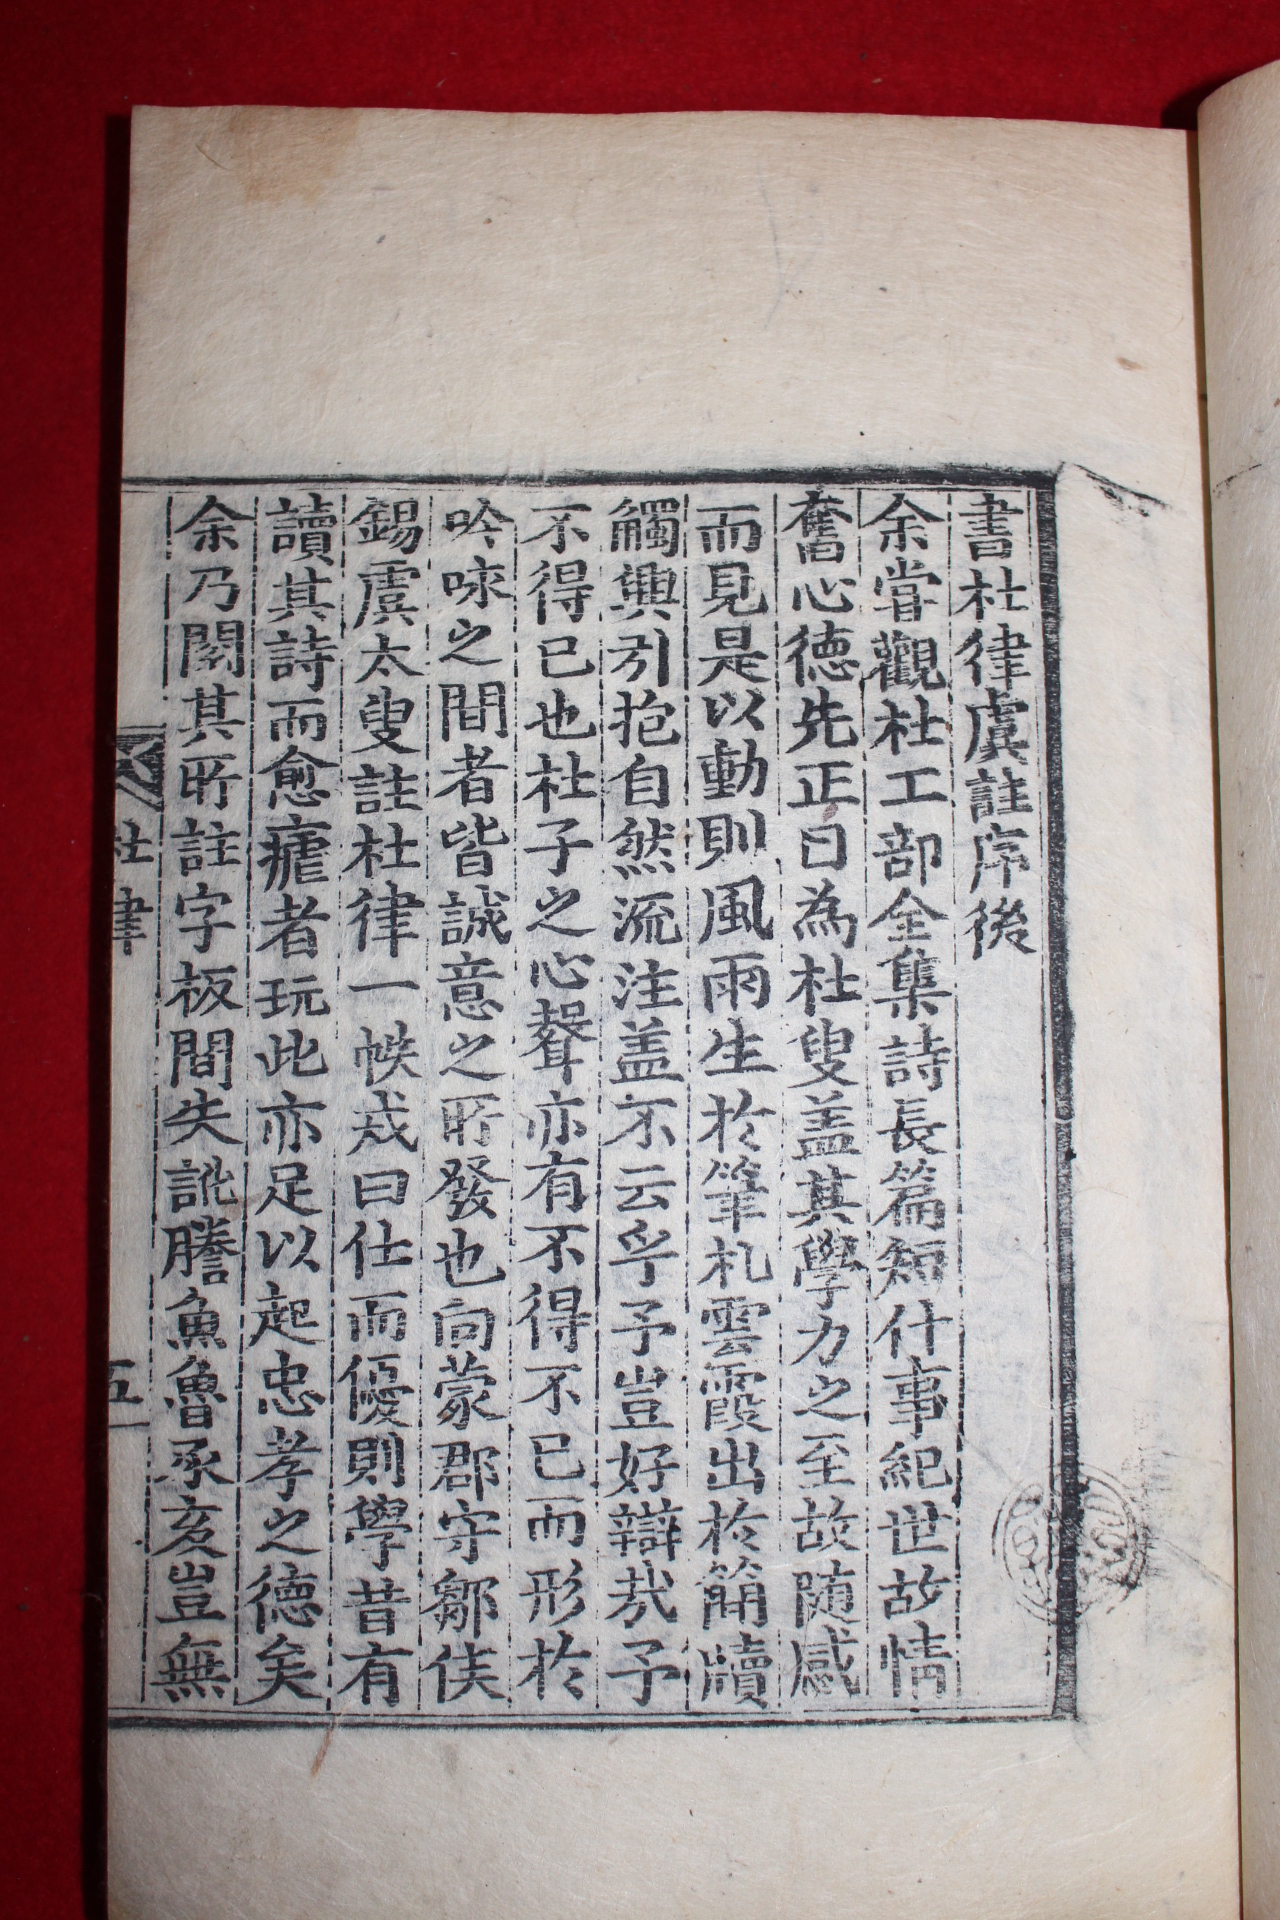 書杜律虞註序後
余甞觀杜工部全集詩長篇短什事紀世故情
奮心德先正曰為杜叟盖其學力之至故随感
而見是以動則風雨生於筆札雲霞出於簡牘
觸興引抱自然流注盖不云乎予豈好辯㢤予
不得已也杜子之心聲亦有不得不已而形於
吟咏之間者皆誠意之所發也向蒙郡守鄒侯
錫虞太叟註杜律一帙戒曰仕而優則學昔有
讀其詩而愈瘧者玩此亦足以起忠孝之德矣
余乃閱其所註字板間失訛謄魚魯豕亥豈無
杜律
五